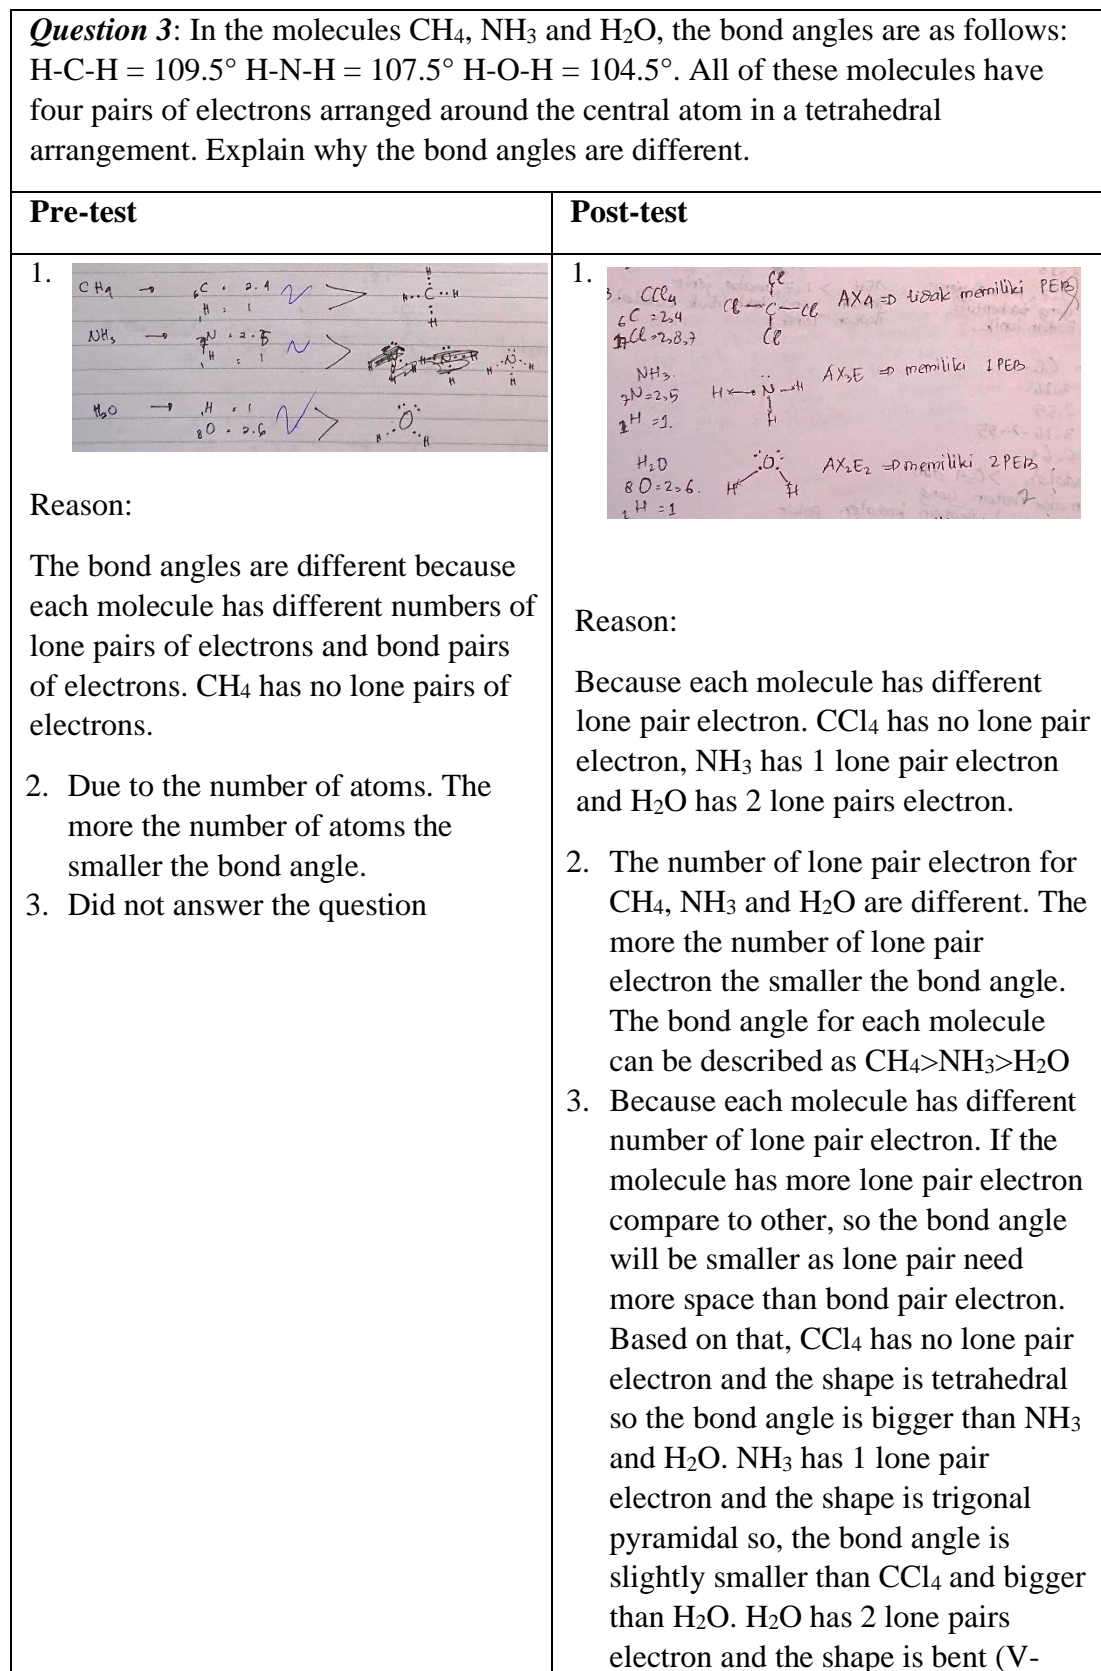 Question 3: In the molecules CH₄, NH₃ and H₂O, the bond angles are as follows:
H-C-H = 109.5° H-N-H = 107.5° H-O-H = 104.5°. All of these molecules have
four pairs of electrons arranged around the central atom in a tetrahedral
arrangement. Explain why the bond angles are different.
Pre-test
1.
CH4 → ₆C = 2.4
₁H = 1
H
H C H
H
NH₃ → ₇N = 2.5
₁H = 1
H N H
H
H₂O → ₁H = 1
₈O = 2.6
O
H H
Reason:
The bond angles are different because
each molecule has different numbers of
lone pairs of electrons and bond pairs
of electrons. CH₄ has no lone pairs of
electrons.
2. Due to the number of atoms. The
more the number of atoms the
smaller the bond angle.
3. Did not answer the question
Post-test
1.
3. CCl4
₆C = 2,4
₁₇Cl = 2,8,7
Cl
Cl C Cl
Cl
AX4 => tidak memiliki PEB
NH₃.
₇N = 2,5
₁H = 1.
H N H
H
AX₃E => memiliki 1 PEB
H₂O
8 O = 2,6.
₁H = 1
O
H H
AX₂E₂ => memiliki 2 PEB.
2
Reason:
Because each molecule has different
lone pair electron. CCl₄ has no lone pair
electron, NH₃ has 1 lone pair electron
and H₂O has 2 lone pairs electron.
2. The number of lone pair electron for
CH₄, NH₃ and H₂O are different. The
more the number of lone pair
electron the smaller the bond angle.
The bond angle for each molecule
can be described as CH₄>NH₃>H₂O
3. Because each molecule has different
number of lone pair electron. If the
molecule has more lone pair electron
compare to other, so the bond angle
will be smaller as lone pair need
more space than bond pair electron.
Based on that, CCl₄ has no lone pair
electron and the shape is tetrahedral
so the bond angle is bigger than NH₃
and H₂O. NH₃ has 1 lone pair
electron and the shape is trigonal
pyramidal so, the bond angle is
slightly smaller than CCl₄ and bigger
than H₂O. H₂O has 2 lone pairs
electron and the shape is bent (V-